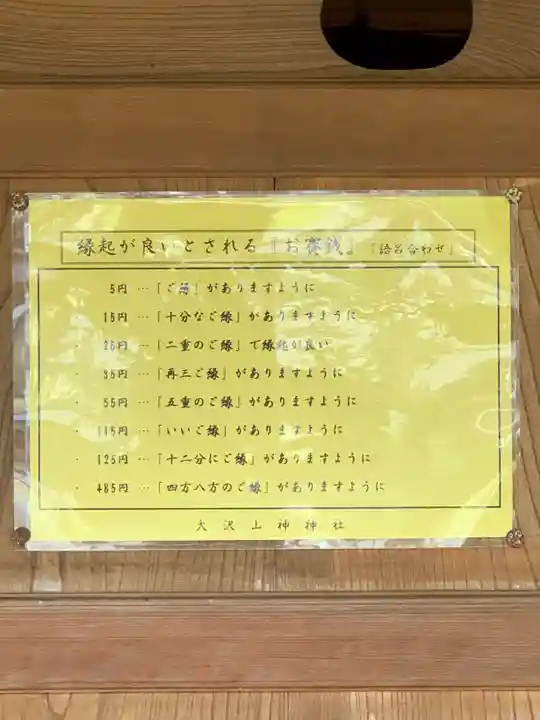 縁起が良いとされる『お賽銭』「語呂合わせ」
・ 5円 …「ご縁」がありますように
・ 15円 …「十分なご縁」がありますように
・ 25円 …「二重のご縁」で縁起が良い
・ 35円 …「再三ご縁」がありますように
・ 55円 …「五重のご縁」がありますように
・ 115円 …「いいご縁」がありますように
・ 125円 …「十二分にご縁」がありますように
・ 485円 …「四方八方のご縁」がありますように
大沢山神神社